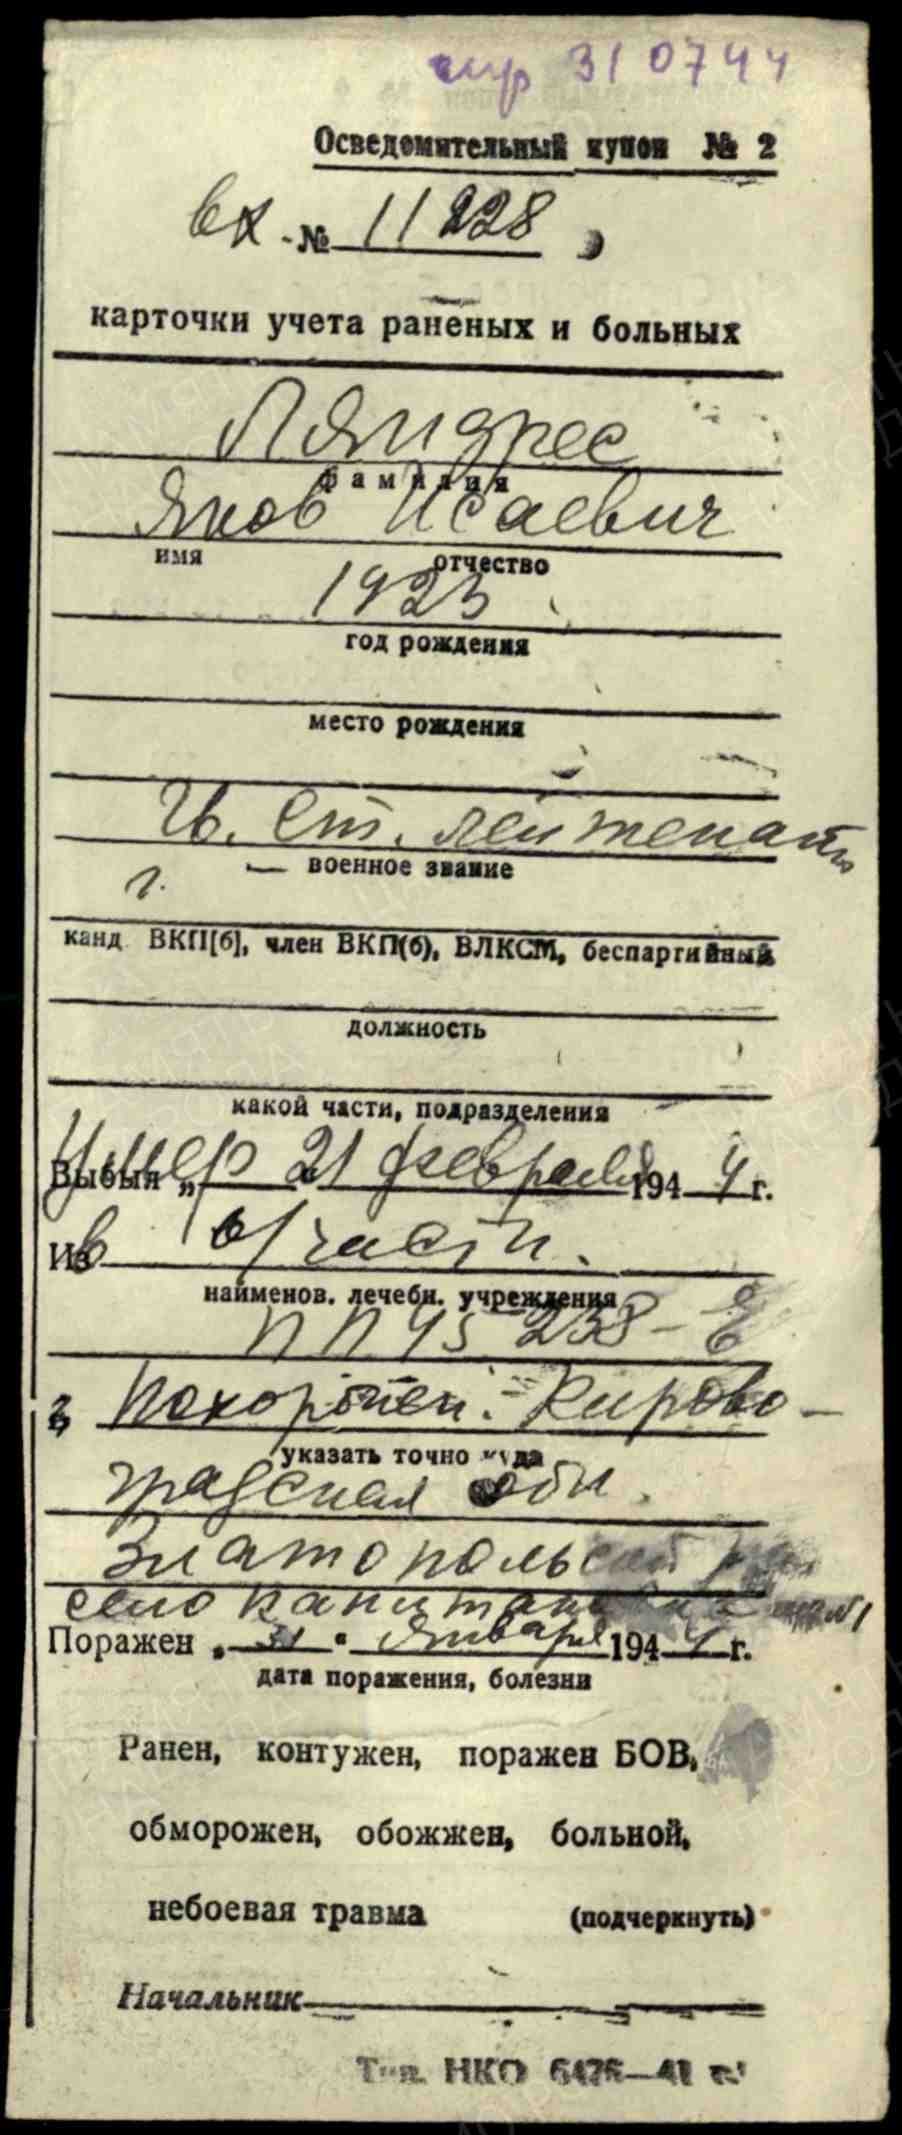 310744
Осведомительный купон № 2
вх. № 11228
карточки учета раненых и больных
Ляндрес
фамилия
Яков Исаевич
имя отчество
1923
год рождения
место рождения
Гв. Ст. лейтенант
военное звание
канд. ВКП[б], член ВКП(б), ВЛКСМ, беспартийный
должность
какой части, подразделения
Выбыл Умер „21 февраля 1944 г.
Из в части.
наименов. лечебн. учреждения
ПП 45238-Е
в Похоронен: Кирово-
указать точно куда
градская обл.
Златопольский
село Капитановка №1
Поражен „31" Января 1944 г.
дата поражения, болезни
Ранен, контужен, поражен БОВ,
обморожен, обожжен, больной,
небоевая травма (подчеркнуть)
Начальник
Тип. НКО 6476—41 г.